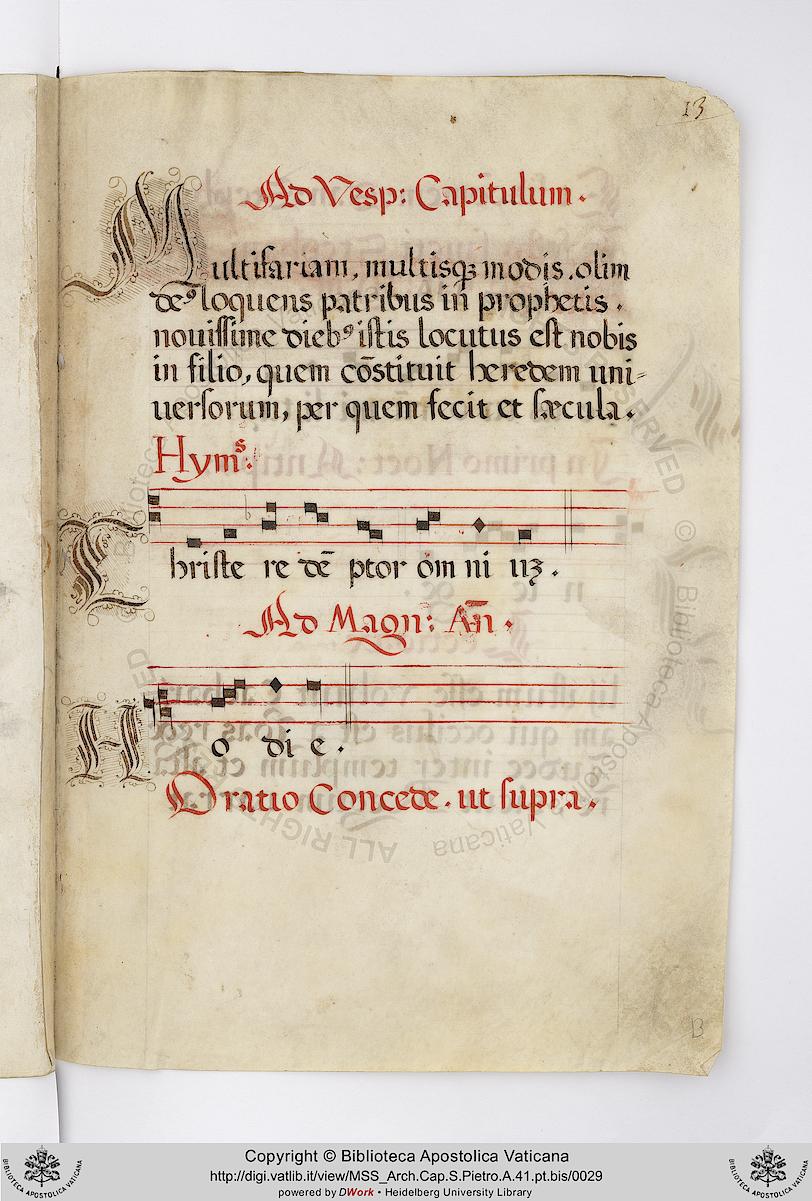 13
Ad Vesp: Capitulum.
Multifariam, multisqꝫ modis. olim
deꝰ loquens patribus in prophetis.
nouissime diebꝰ istis locutus est nobis
in filio, quem cōstituit heredem uni-
uersorum, per quem fecit et sæcula.
Hymˢ:
Christe re dē ptor om ni uꝫ.
Ad Magn: Añ.
Ho di e.
Oratio Concede. ut supra.
B
Copyright © Biblioteca Apostolica Vaticana
http://digi.vatlib.it/view/MSS_Arch.Cap.S.Pietro.A.41.pt.bis/0029
powered by DWork • Heidelberg University Library